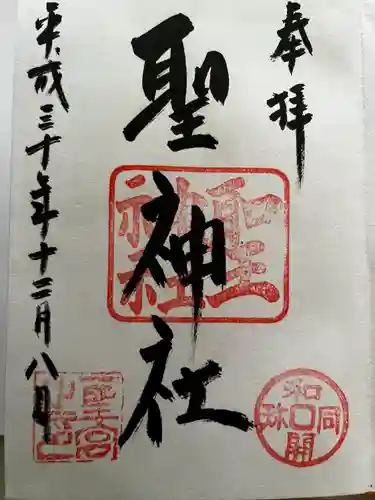 奉拝
聖神社
聖神社
和同開珎
平成三十年十二月八日